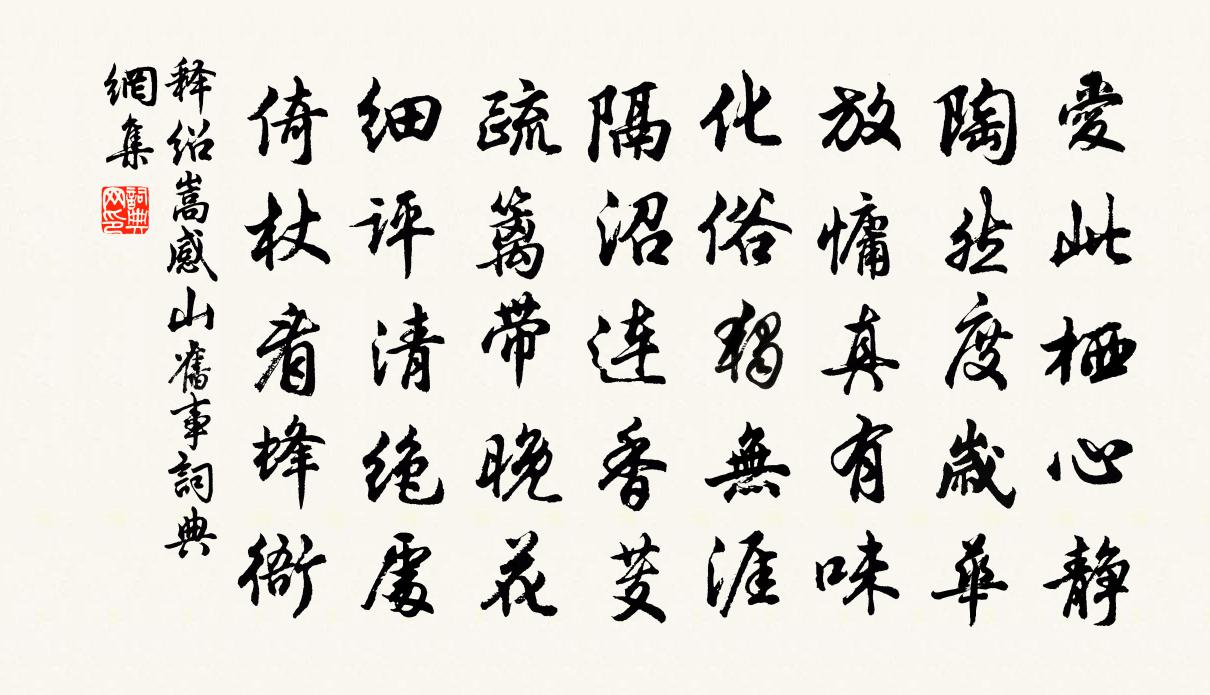 愛此栖心靜
陶然度歲華
放慵真有味
化俗獨無涯
隔沼連香芰
疏篱帶晚花
細评清绝處
倚杖看蜂衙
释绍嵩感山舊事詞典
網集
詞典
网印